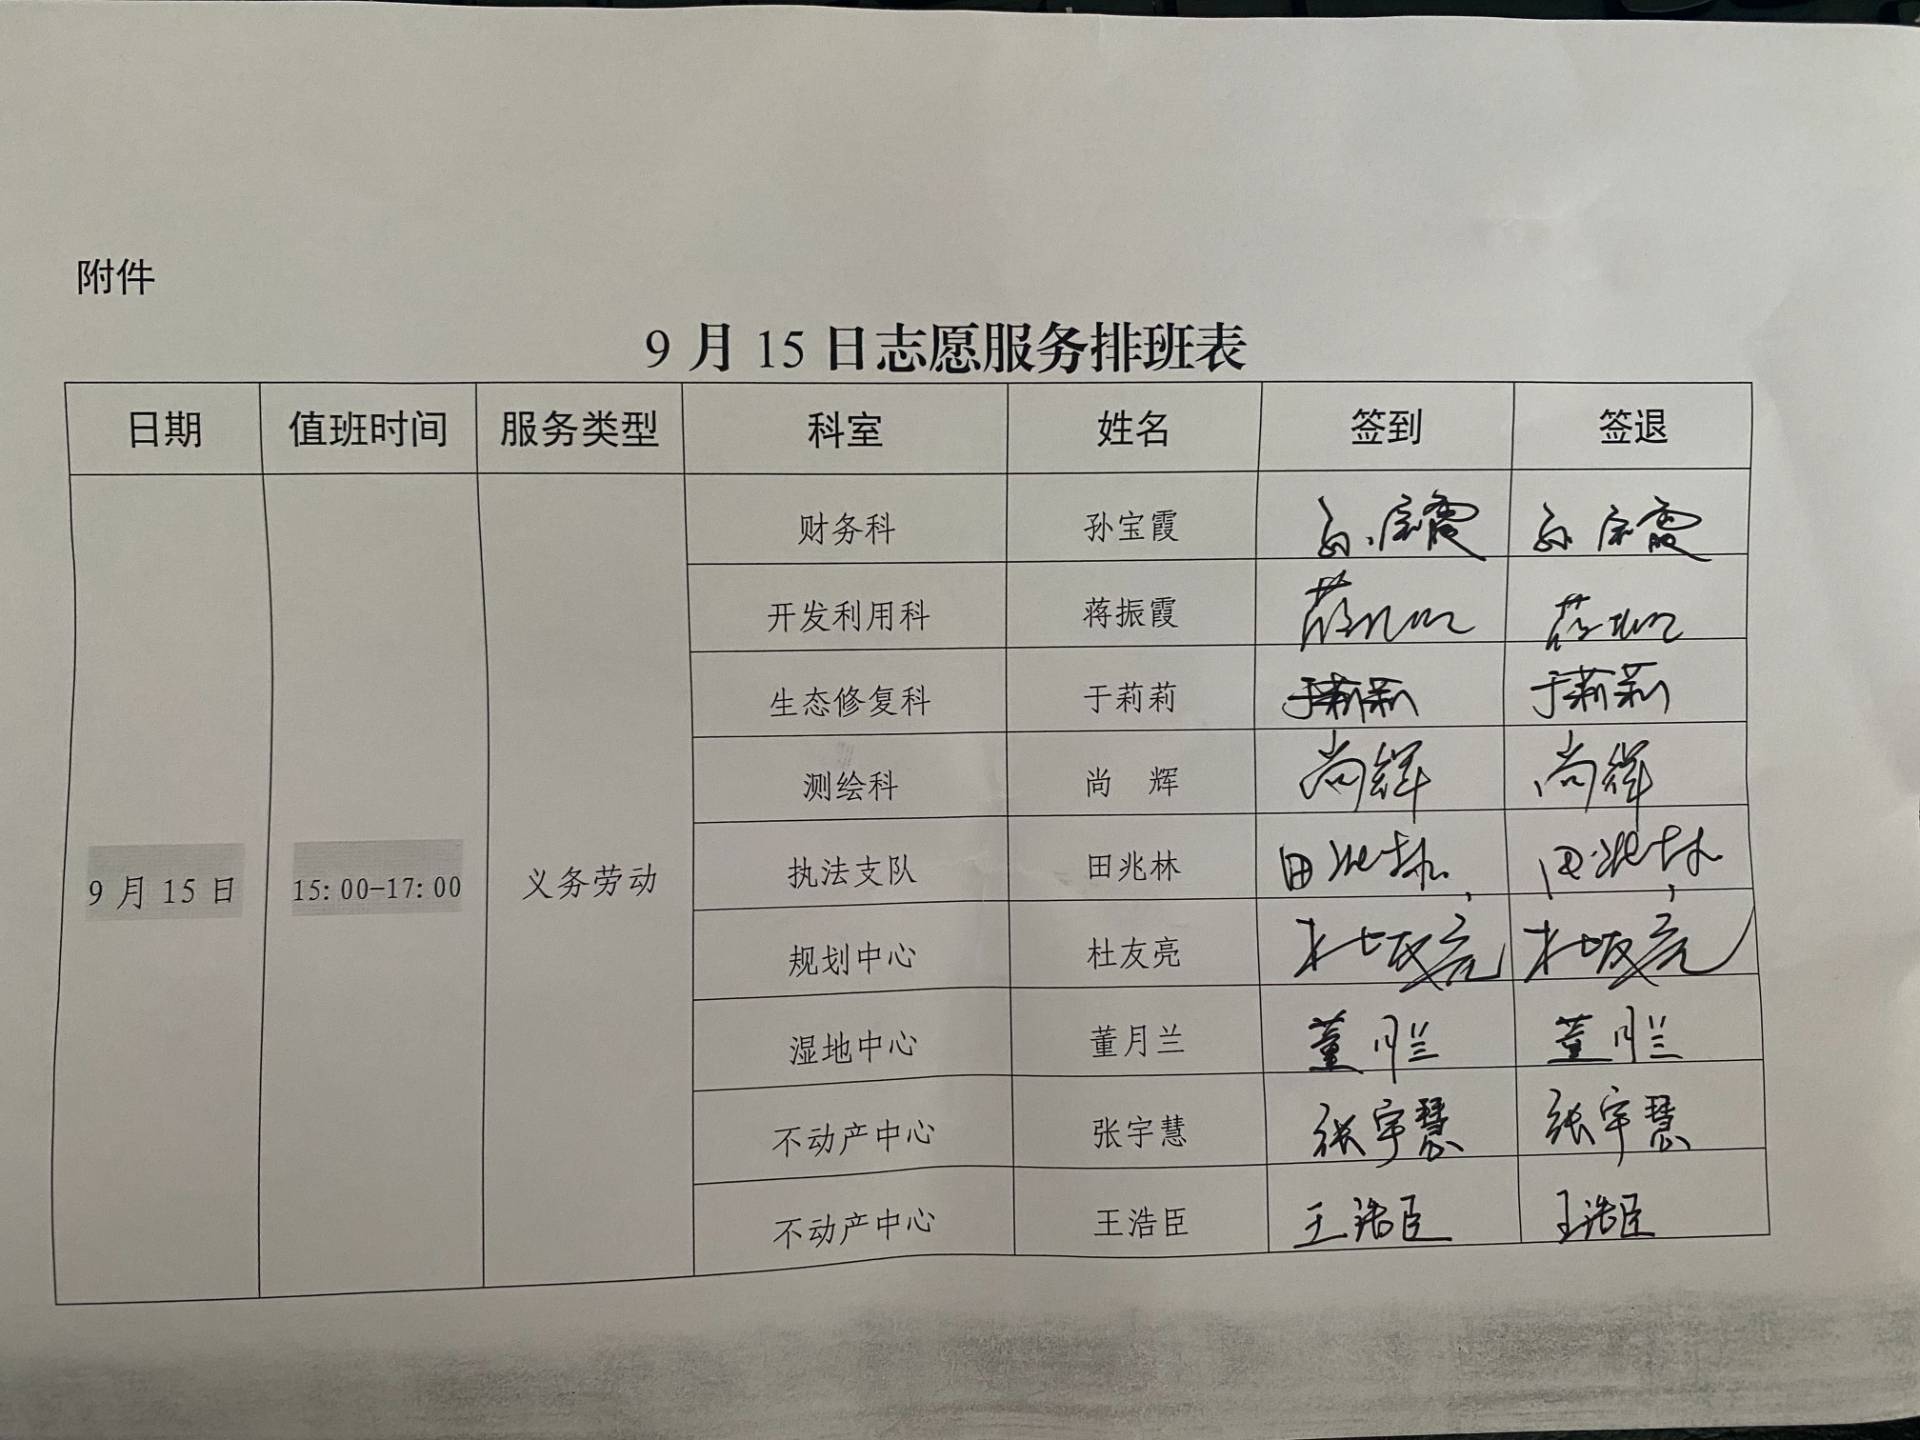 附件
9 月 15 日志愿服务排班表
日期 值班时间 服务类型 科室 姓名 签到 签退
财务科 孙宝霞 孙宝霞 孙宝霞
开发利用科 蒋振霞
生态修复科 于莉莉 于莉莉 于莉莉
测绘科 尚 辉 尚辉 尚辉
9 月 15 日 15:00-17:00 义务劳动 执法支队 田兆林 田兆林 田兆林
规划中心 杜友亮 杜友亮 杜友亮
湿地中心 董月兰 董月兰 董月兰
不动产中心 张宇慧 张宇慧 张宇慧
不动产中心 王浩臣 王浩臣 王浩臣